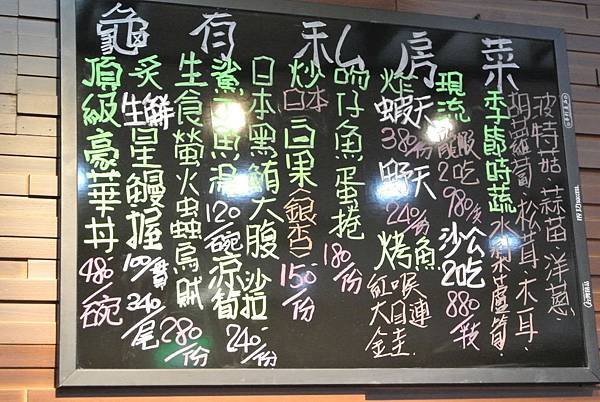 龜有私房菜
頂級豪華丼 480/碗
炙生鮮星鰻握 100/貫 340/尾
生食螢火蟲烏賊 280/份
鯊魚湯 120/碗 涼筍沙拉 240/份
日本黑鮪大腹
炒日本白果(銀杏) 150/份
吻仔魚蛋捲 180/份
炸蝦天 380/份 野天 240/份 烤魚 紅喉 大目連 金圭
現流龍膽 2吃 980/隻 沙公 2吃 880/隻
季節時蔬 水梨 蘆筍
胡蘿蔔 松茸 木耳
波特菇 蒜苗 洋蔥